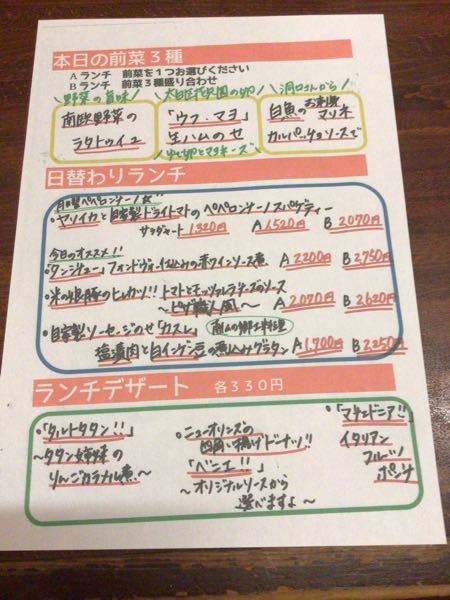 本日の前菜３種
Aランチ 前菜を１つお選びください
Bランチ 前菜３種盛り合わせ
野菜の旨味
南欧野菜の
ラタトゥイユ
「ウフ・マヨ」
生ハムのせ
ゆで卵とマヨネーズ
洞口さんから
白魚のお米酢
マリネ
カルパッチョソースで
日替わりランチ
月曜ペペロンチーノ
・ヤリイカと自家製ドライトマトのペペロンチーノスパゲティー
サラダチャート 1,320円 A 1,520円 B 2,070円
今日のオススメ!!
・「タンシチュー」フォンドヴォー仕込みの赤ワインソース煮 A 2,200円 B 2,750円
・米の娘豚のヒレカツ!! トマトとモッツァレラチーズのソース
～ピザ職人風～ A 2,070円 B 2,620円
・自家製ソーセージのせ「カスレ」 南仏の郷土料理
塩漬肉と白インゲン豆の煮込みグラタン A 1,700円 B 2,250円
ランチデザート 各３３０円
・「タルトタタン!!」
～タタン姉妹の
りんごカラメル煮～
・ニューオリンズの
四角い揚げドーナッツ!!
「ベニエ!!」
～オリジナルソースから
選べますよ～
・「マチェドニア!!」
イタリアン
フルーツ
ポンチ